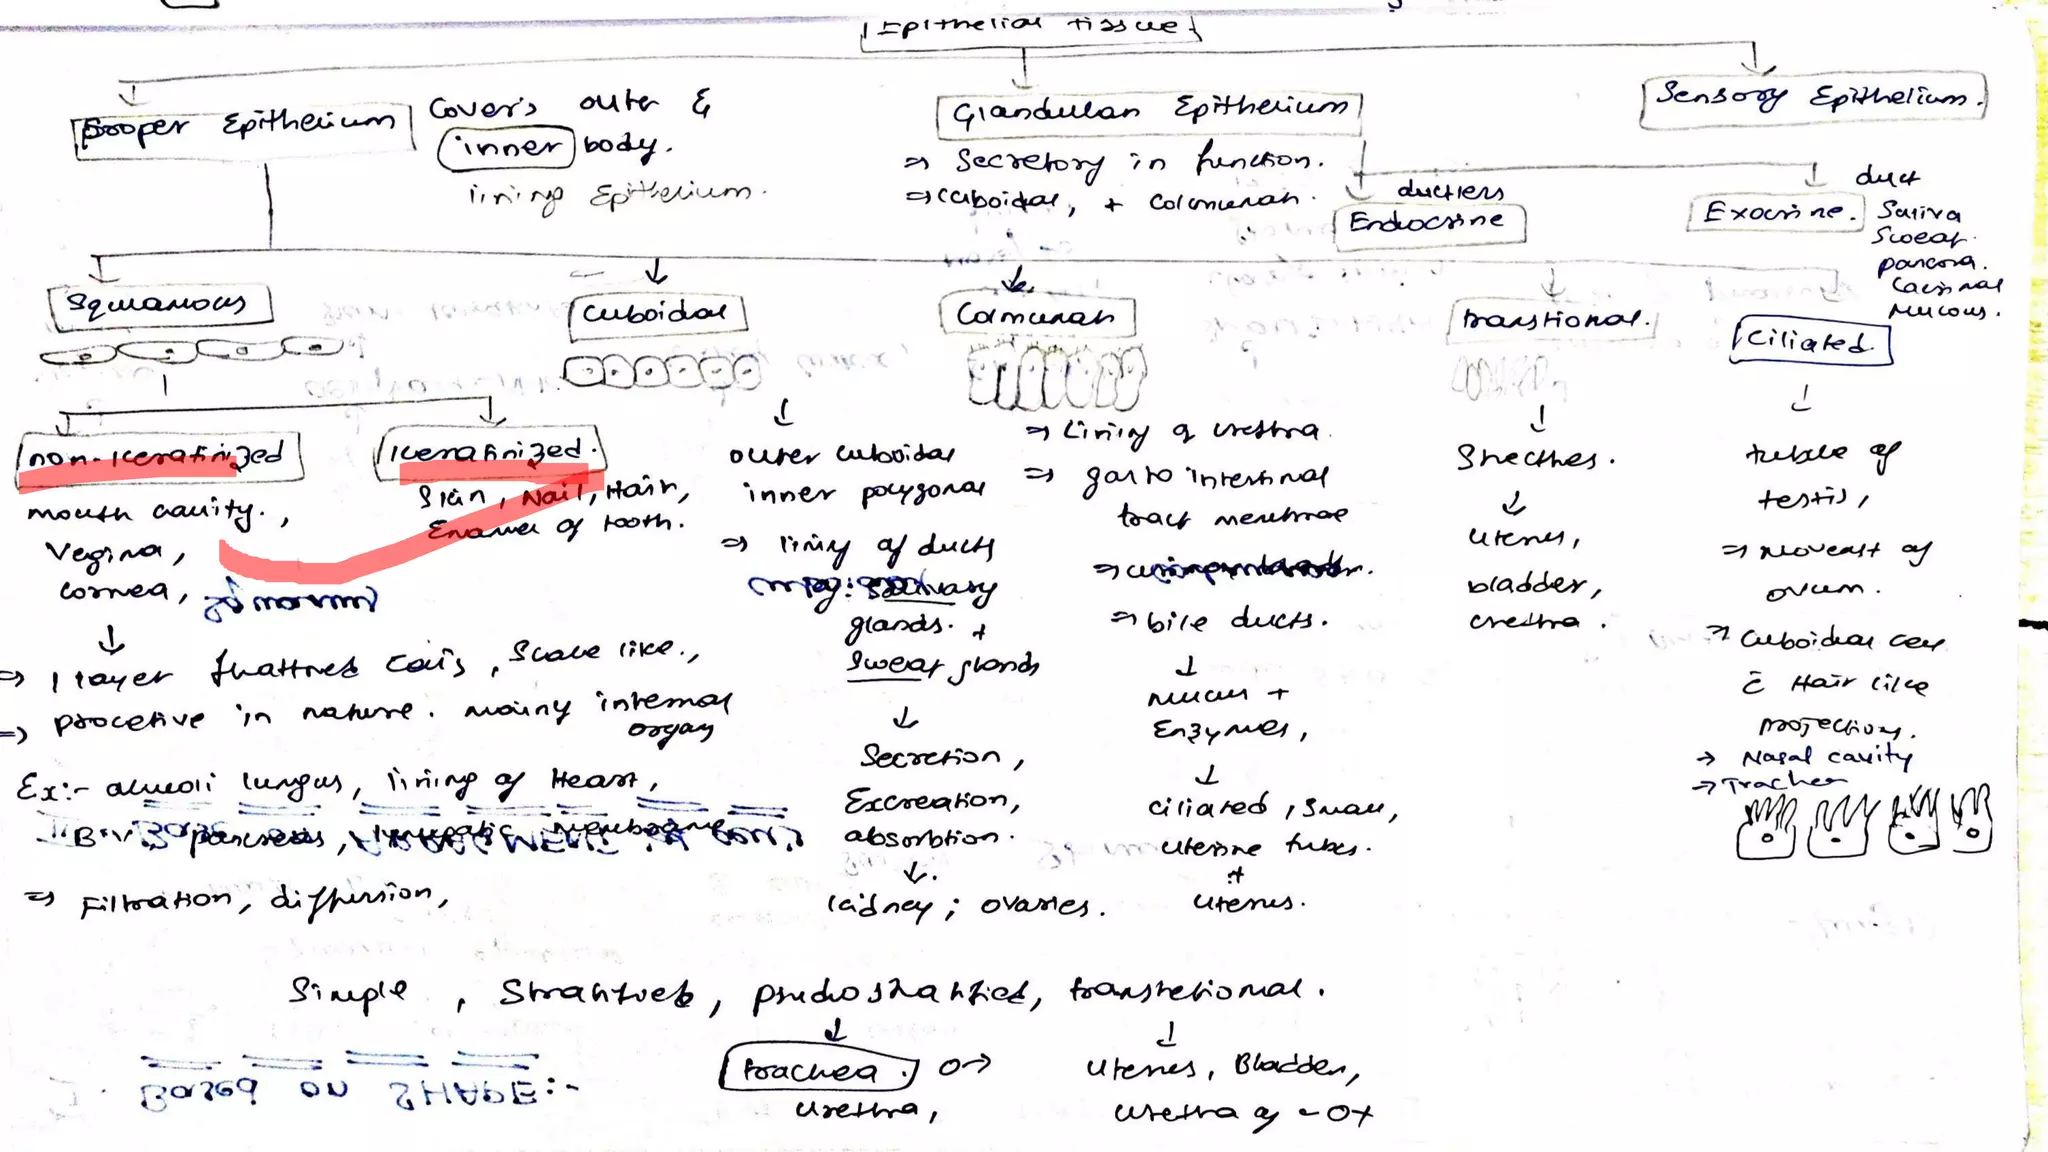 Epithelial tissue
Proper Epithelium
Covers outer &
inner body.
lining Epithelium.
Glandular Epithelium
⇒ Secretory in function.
⇒ Cuboidal, + Colmunar.
Sensory Epithelium.
ductlers
Endocrine
Exocrine.
duct
Saliva
Sweat.
Mucous.
Squamous
Cuboidal
Colmunar
transtional.
Ciliated
non-keratinized
mouth cavity.,
Vegina,
Cornea,
Keratinized.
Skin, Nail, Hair,
Enamel of tooth.
⇒ 1 layer flattned cells, Scale like.,
⇒ procetive in nature. mainly internal
organs
Ex:- alveoli lungus, lining of Heart,
B.V, pancreas,
⇒ Filtration, diffusion,
outer cuboidal
inner polygonal
⇒ lining of ducts
Salivary
glands. +
Sweat glands
Secretion,
Excreation,
absorbtion.
kidney; ovaries.
⇒ Lining of urethra.
⇒ gasto intestinal
tract membrae
⇒ bile ducts.
mucus +
Enzymes,
ciliated, small,
uterine tubes.
+
uterus.
Strecthes.
uterus,
bladder,
urethra.
tubule of
testis,
⇒ movemt of
ovum.
⇒ Cuboidal cell
c̄ Hair like
projections.
→ Nasal cavity
→ Trachea
Simple, Stratified, pseudostratified, transitional.
trachea.
urethra,
Uterus, Bladder,
Urethra of
Based on SHAPE:-